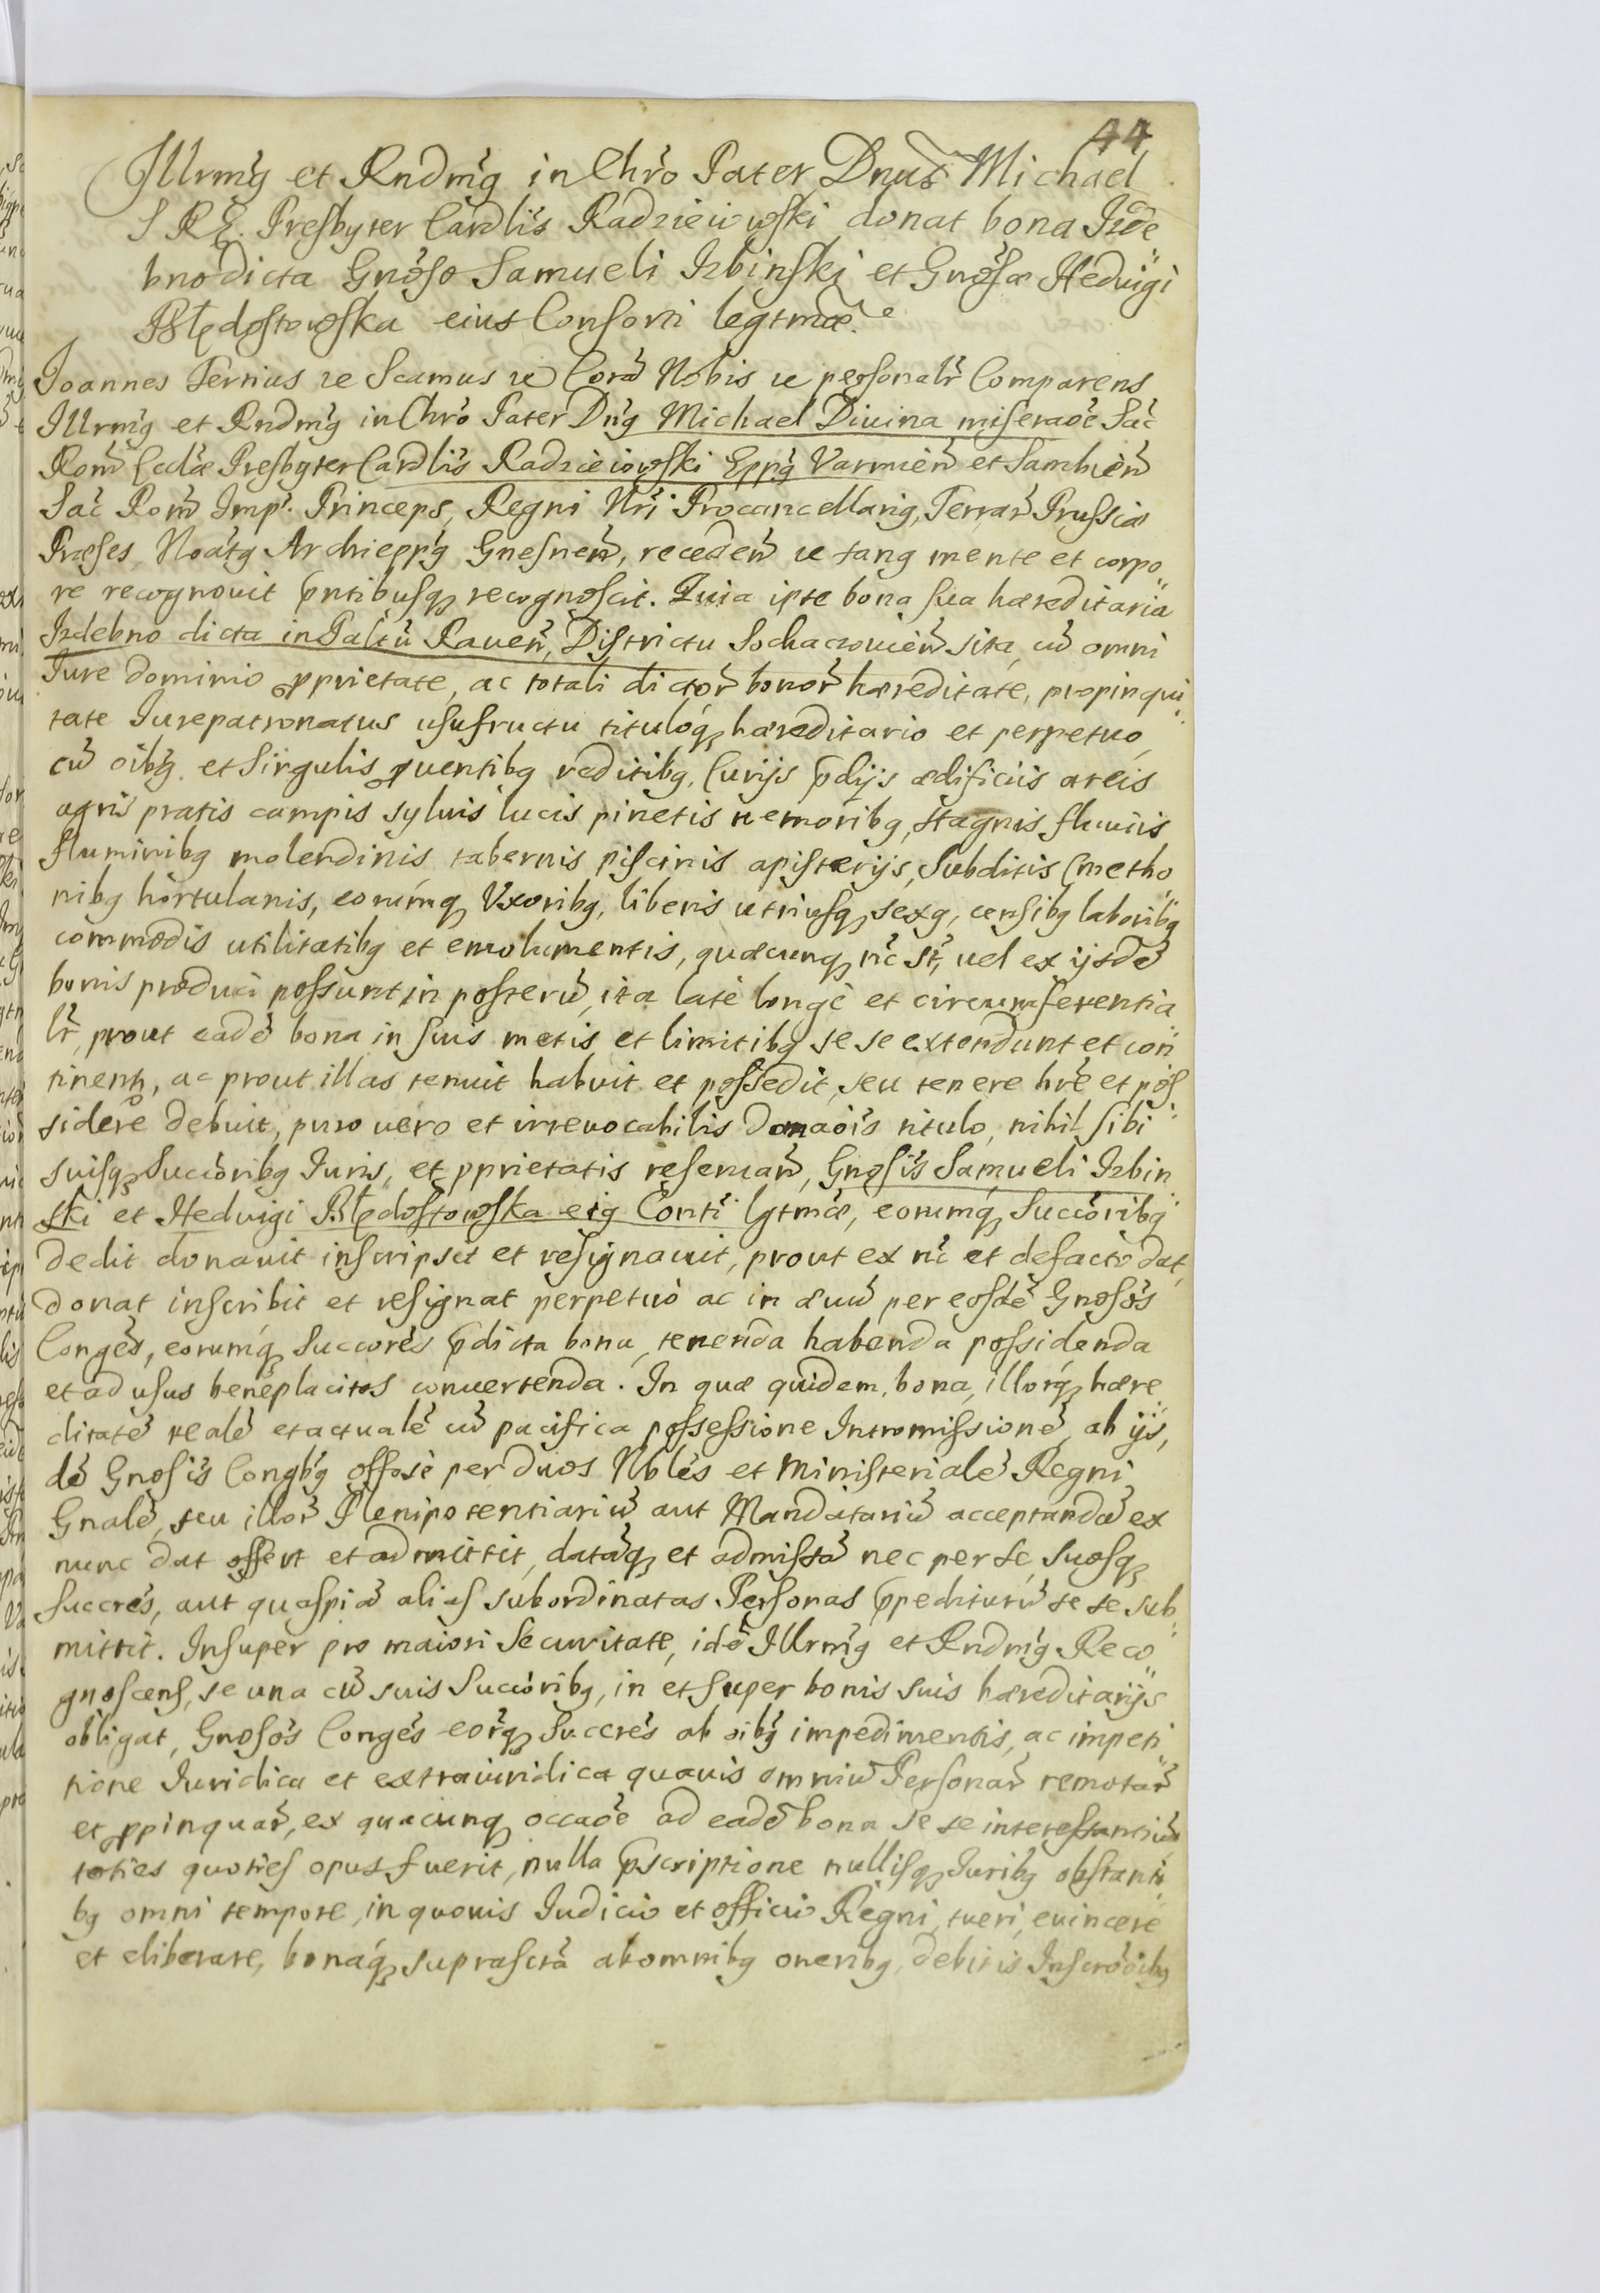 44
Illrmg et Rndmg in Chro Pater Dnus Michael
S R E. Presbyter Cardlis Radzieiowski donat bona Izde
bno dicta Gnoso Samueli Izbinski et Gnosæ Heduigi
Błędostowska eius Consorti legtmæ.
Joannes Tertius &c Scamus &c Corã Nobis &c personalr Comparens
Illrmg et Rndmg in Chro Pater Dng Michael Diuina miseraõe Sac
Rom Ecclæ Presbyter Cardlis Radzieiowski Eppg Varmień et Sambień
Sac Rom Imp. Princeps, Regni Nri Procancellarig, Terrar Prussiæ
Præses, Noatg Archieppg Gnesneń, recedeń &c sang mente et corpo
re recognouit pntibusq recognoscit. Quia ipse bona sua hæreditaria
Izdebno dicta in Paltu Raueń, Districtu Sochaczouień sita, cũ omni
Iure dominio pprietate, ac totali dictor bonor hæreditate, propinqui
tate Iurepatronatus usufructu tituloq hæreditario et perpetuo,
cũ oibg et Singulis puentibg reditibg, Curijs pdijs ædificiis areis
agris pratis campis syluis lucis pinetis nemoribg, stagnis fluuiis
fluminibg molendinis tabernis piscinis apisterijs, Subditis Cmetho
nibg hortulanis, eorumq Vxoribg, liberis utriusq sexg, censibg laboribg
commodis utilitatibg et emolumentis, quæcunq nc st, uel ex ijsdẽ
bonis produci possunt in posterũ, ita late longè et circumferentia
lr, prout eadẽ bona in suis metis et limitibg se se extendunt et con
tinent, ac prout illas tenuit habuit et possedit, seu tenere hrẽ et pos
sidere debuit, puro uero et irreuocabilis donaõis titulo, nihil sibi
suisq Succõribg Iuris, et pprietatis reseruań, Gnosis Samueli Izbin
ski et Heduigi Błędostowska eig Conti lgtmæ, eorumq Succõribg
dedit donauit inscripsit et resignauit, prout ex nc et defacto dat,
donat inscribit et resignat perpetuò ac in æuũ per eosdẽ Gnosos
Conges, eorumq Succores pdicta bona, tenenda habenda possidenda
et ad usus beneplacitos conuertenda. In quæ quidem, bona, illorq hære
ditatẽ realẽ et actualẽ cũ pacifica possessione Intromissionẽ, ab ijs,
dẽ Gnosis Congbg offose per duos Nbles et Ministerialẽ Regni
Gnalẽ, seu illor Plenipotentiariũ aut Mandatariũ acceptandã ex
nunc dat offert et admittit, datãq et admissã nec per se, suosq
succres, aut quaspiã alias subordinatas Personas ppediturũ se se sub
mittit. Insuper pro maiori Securitate, idẽ Illrmg et Rndmg Reco
gnoscens, se una cũ suis Succõribg, in et super bonis suis hæreditarijs
obligat, Gnosos Conges eorq Succres ab oibg impedimentis, ac impeti
tione Iuridica et extraiuridica quauis omniũ Personar remotar
et ppinquar, ex quacunq occaõe ad eadẽ bona se se interessantiũ
toties quoties opus fuerit, nulla pscriptione nullisq Iuribg obstanti
bg omni tempore, in quouis Iudicio et officio Regni, tueri, euincere
et eliberare, bonaq suprasctã ab omnibg oneribg, debitis Inscrõõibg